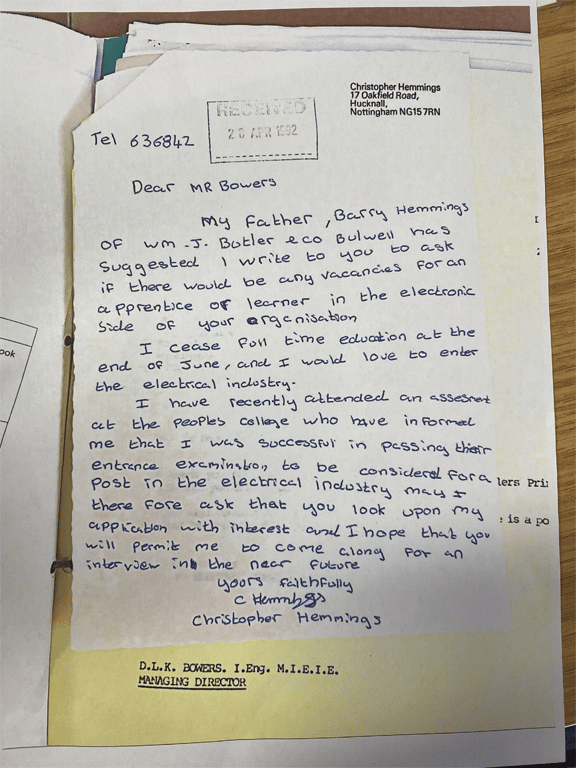 Christopher Hemmings
17 Oakfield Road,
Hucknall,
Nottingham NG15 7RN
RECEIVED
28 APR 1992
Tel 636842
Dear MR Bowers
My Father, Barry Hemmings
OF Wm. J. Butler & co Bulwell has
suggested I write to you to ask
if there would be any vacancies for an
apprentice or learner in the electronic
Side of your organisation
I cease full time education at the
end of June, and I would love to enter
the electrical industry.
I have recently attended an
at the peoples college who have informed
me that I was successful in passing their
entrance examination, to be considered for a
Post in the electrical industry may I
there fore ask that you look upon my
application with interest and I hope that you
will permit me to come along for an
interview in the near future
yours faithfully
C Hemmings
Christopher Hemmings
D.L.K. BOWERS. I.Eng. M.I.E.I.E.
MANAGING DIRECTOR
ook
I
;
lers Pri
is a po